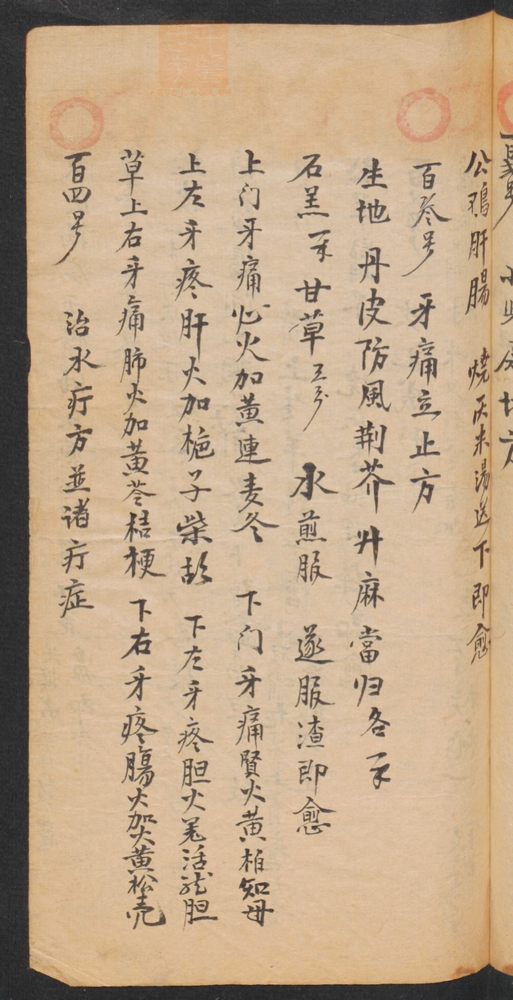 公鸡肝肠 烧灰米汤送下即愈
百叁号 牙痛立止方
生地 丹皮防風荆芥升麻當归各一不
石羔一不 甘草五分 水煎服 遂服渣即愈
上门牙痛心火加黄連麦冬 下门牙痛賢火黄柏知母
上左牙疼肝火加栀子柴胡 下左牙疼胆火羌活龙胆
草上右牙痛肺火加黄芩桔梗 下右牙疼腸火加大黄松壳
百四号 治水疔方並诸疔症